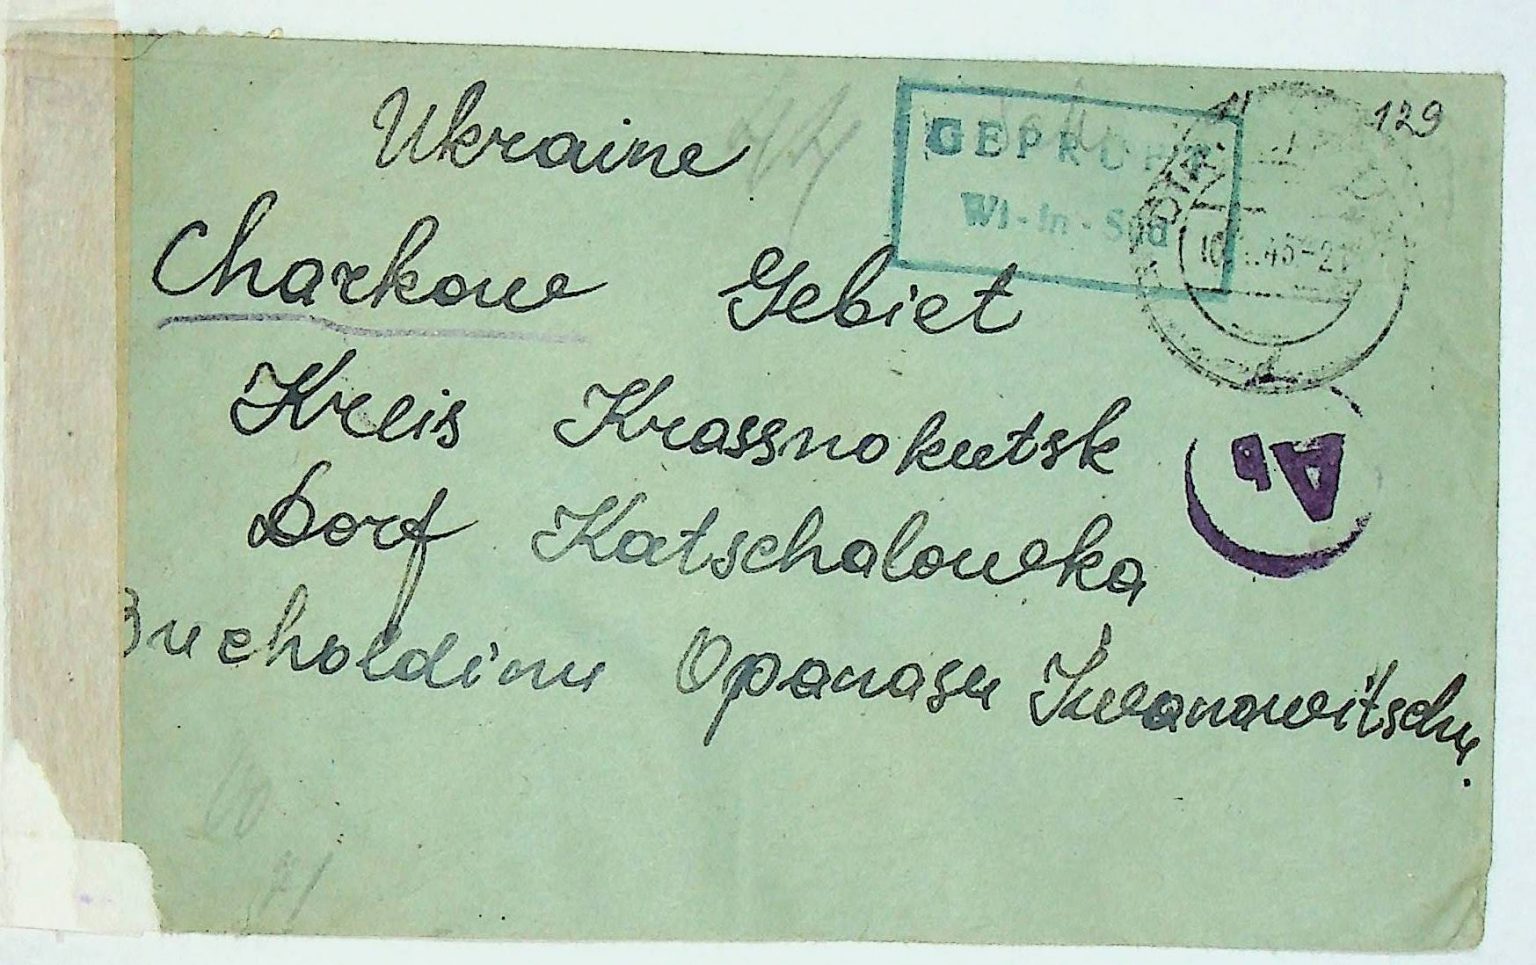 Ukraine
GEPRÜFT
Wi-In-Süd
129
Charkow Gebiet
Kreis Krassnokutsk
Ab
Dorf Katschalowka
Bucholdinu Opanasu Iwanowitschu.